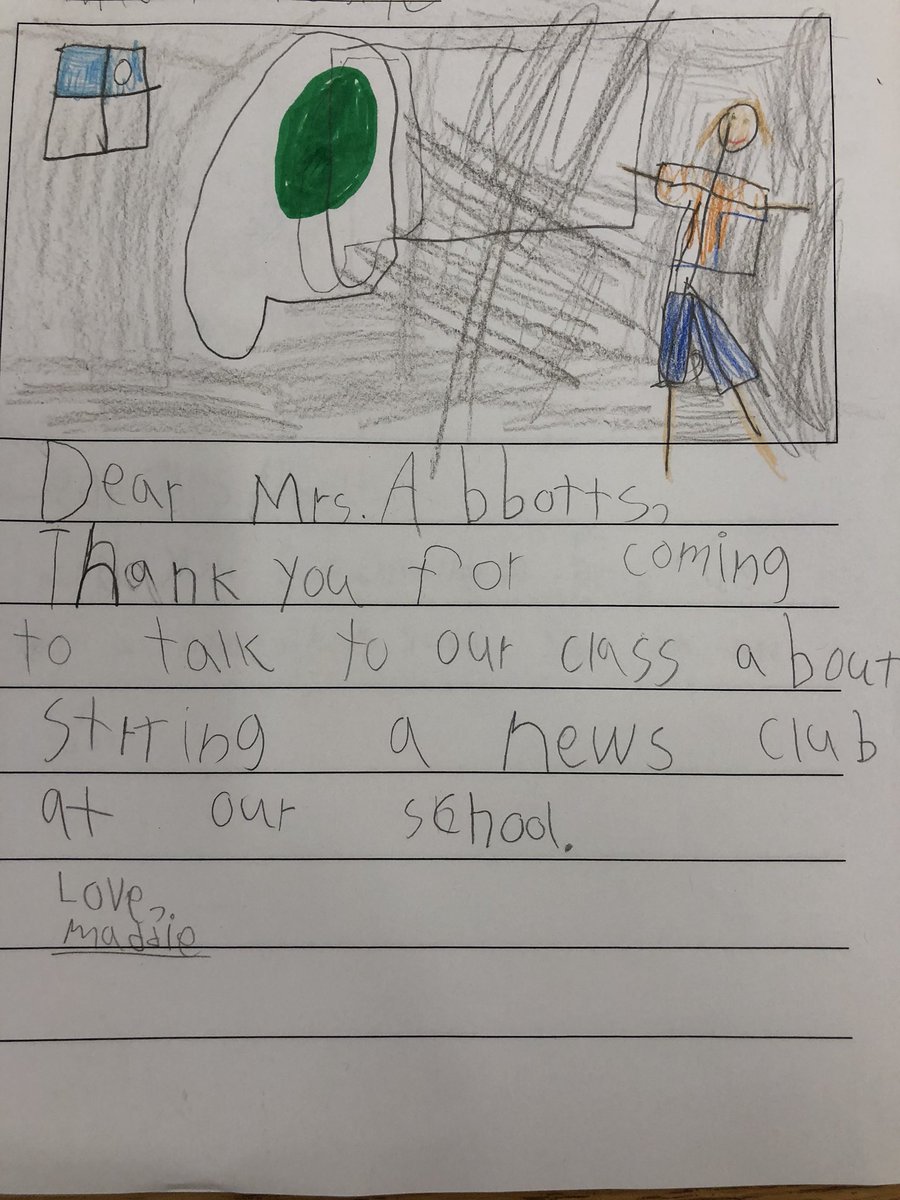 Dear Mrs. Abbotts,
Thank you for coming
to talk to our class about
Strting a news club
at our school.
Love,
Maddie